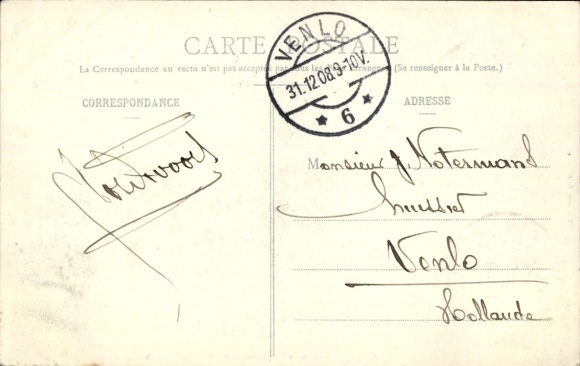 CARTE POSTALE
La Correspondance au recto n'est pas acceptée par tous les Pays Étrangers (Se renseigner à la Poste.)
VENLO
31.12.08 9-10V.
* 6 *
CORRESPONDANCE
ADRESSE
Monsieur J. Notermans
huissier
Venlo
Hollande